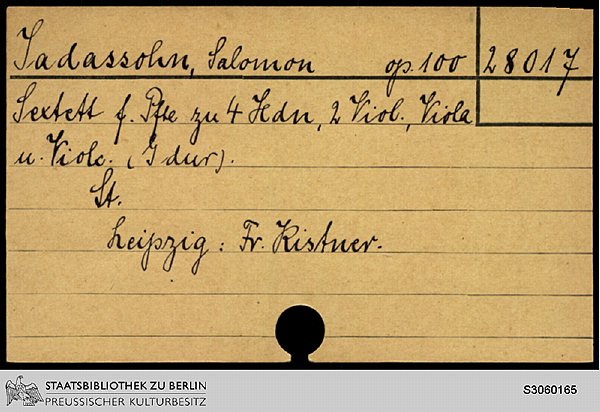 Jadassohn, Salomon op. 100 28017
Sextett f. Pfte zu 4 Hdn, 2 Viol., Viola
u. Violc. (G dur).
St.
Leipzig: Fr. Kistner.
STAATSBIBLIOTHEK ZU BERLIN
PREUSSISCHER KULTURBESITZ
S3060165